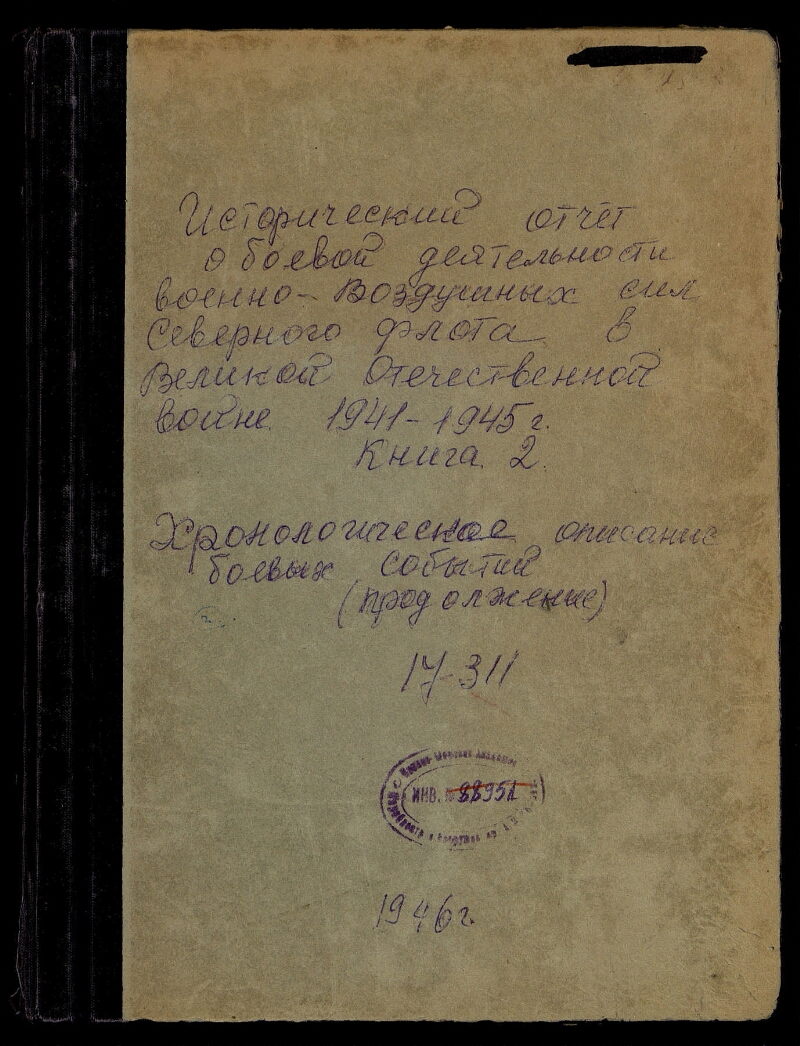 Исторический отчёт
о боевой деятельности
военно-Воздушных сил
Северного флота в
Великой Отечественной
войне 1941-1945 г.
Книга 2.
Хронологическое описание
боевых событий
(продолжение)
17-311
Военно-Морская Академия
ИНВ. № 88951
1946 г.